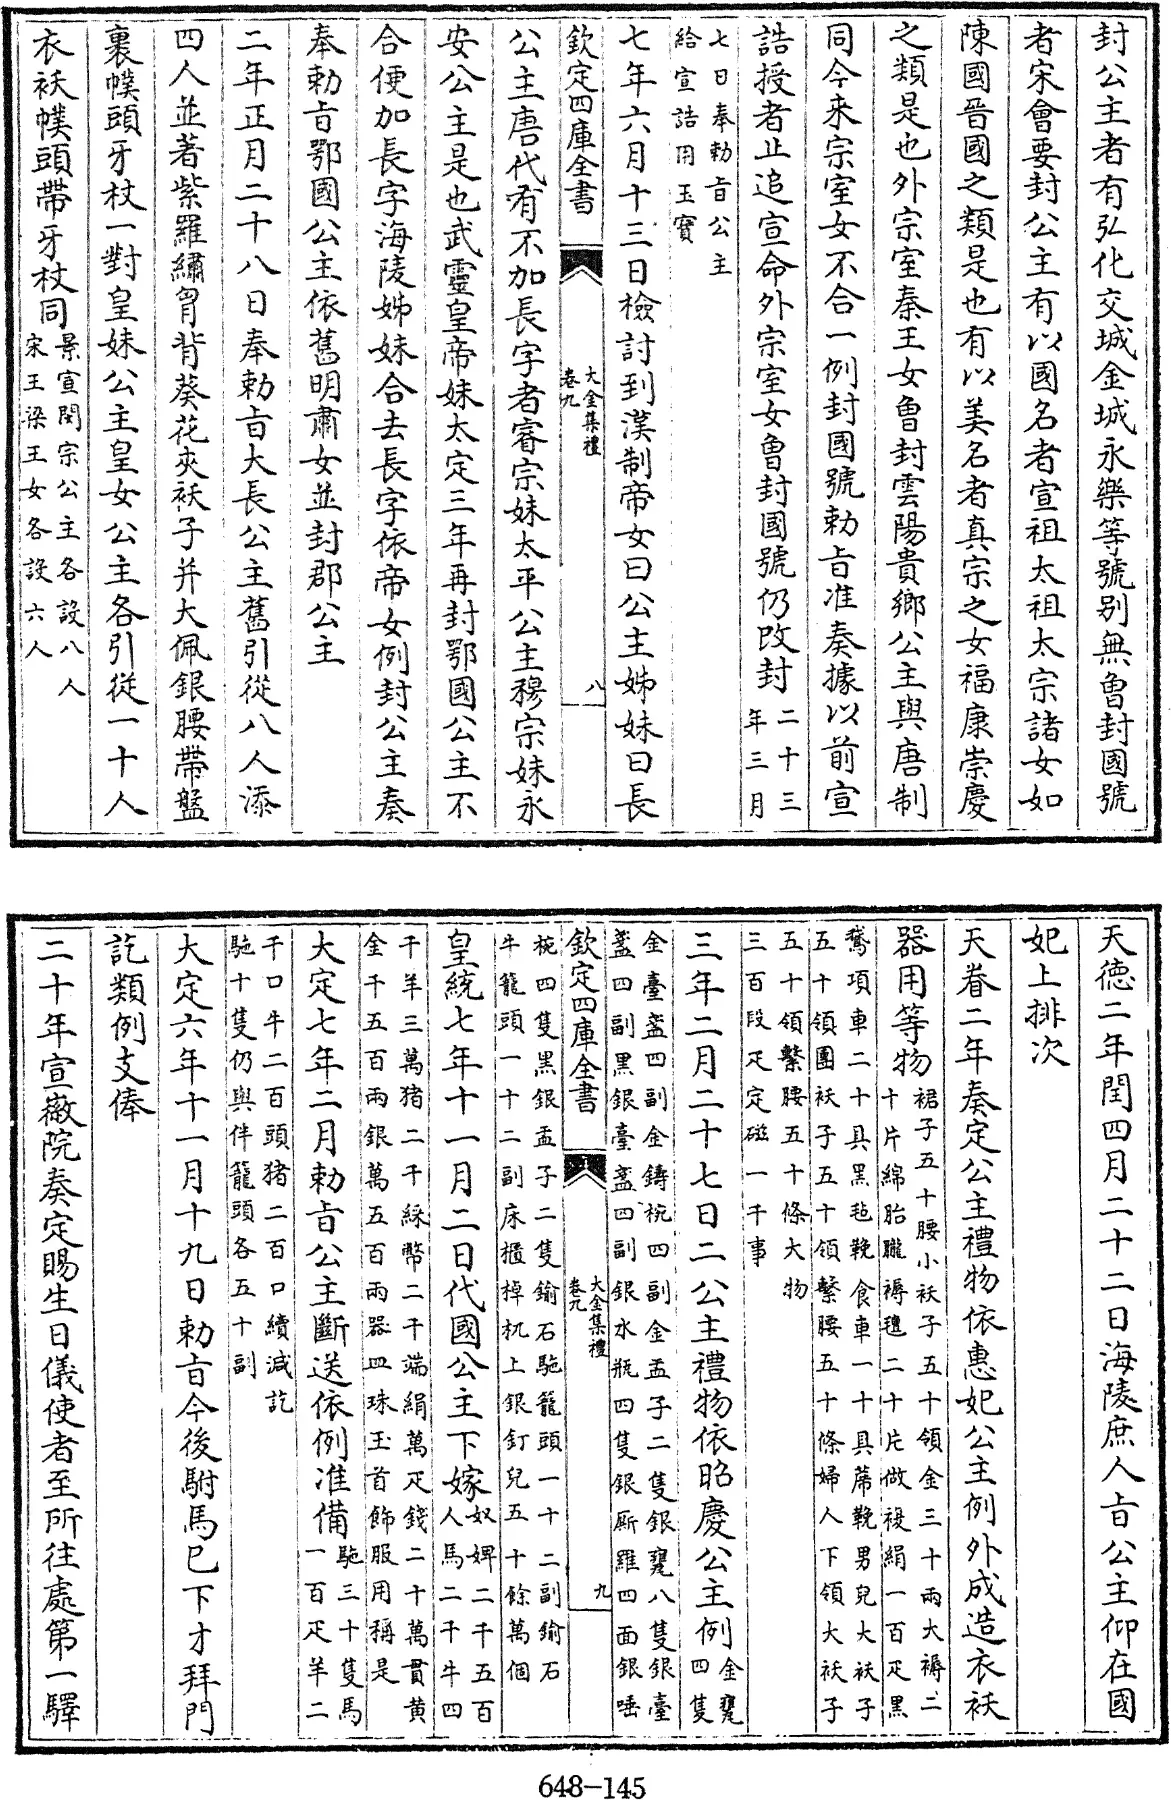 封公主者有弘化交城金城永樂等號别無曾封國號
者宋會要封公主有以國名者宣祖太祖太宗諸女如
陳國晉國之類是也有以美名者真宗之女福康崇慶
之類是也外宗室秦王女曾封雲陽貴鄉公主與唐制
同今來宗室女不合一例封國號勅㫖准奏據以前宣
誥授者止追宣命外宗室女曾封國號仍改封二十三
年三月
七日奉勅㫖公主
給宣誥用玉寳
七年六月十三日檢討到漢制帝女曰公主姊妹曰長
欽定四庫全書
大金集禮
卷九
八
公主唐代有不加長字者睿宗妹太平公主穆宗妹永
安公主是也武靈皇帝妹太定三年再封鄂國公主不
合便加長字海陵姊妹合去長字依帝女例封公主奏
奉勅㫖鄂國公主依舊明肅女並封郡公主
二年正月二十八日奉勅㫖大長公主舊引從八人添
四人並著紫羅繡胷背葵花夾襖子并大佩銀腰帶盤
裹幞頭牙杖一對皇妹公主皇女公主各引從一十人
衣襖幞頭帶牙杖同景宣閔宗公主各設八人
宋王梁王女各設六人
天德二年閏四月二十二日海陵庶人㫖公主仰在國
妃上排次
天眷二年奏定公主禮物依惠妃公主例外成造衣襖
器用等物裙子五十腰小襖子五十領金三十兩大褥二
十片綿胎朧褥氊二十片做複絹一百疋黑
鵞項車二十具黑毡鞔食車一十具蓆鞔男兒大襖子
五十領團襖子五十領繫腰五十條婦人下領大襖子
五十領繫腰五十條大物
三百段疋定磁一千事
三年二月二十七日二公主禮物依昭慶公主例金甕
四隻
金臺盞四副金鑄椀四副金盂子二隻銀甕八隻銀臺
盞四副黑銀臺盞四副銀水瓶四隻銀厮羅四面銀唾
欽定四庫全書
大金集禮
卷九
九
椀四隻黑銀盂子二隻鍮石駞籠頭一十二副鍮石
牛籠頭一十二副床櫃棹杌上銀釘兒五十餘萬個
皇統七年十一月二日代國公主下嫁奴婢二千五百
人馬二千牛四
千羊三萬猪二千綵幣二千端絹萬疋錢二十萬貫黄
金千五百兩銀萬五百兩器皿珠玉首飾服用稱是
大定七年二月勅㫖公主斷送依例准備駞三十隻馬
一百疋羊二
千口牛二百頭猪二百口續減訖
駞十隻仍與伴籠頭各五十副
大定六年十一月十九日勅㫖今後駙馬已下才拜門
訖類例支俸
二十年宣徽院奏定賜生日儀使者至所往處第一驛
648-145